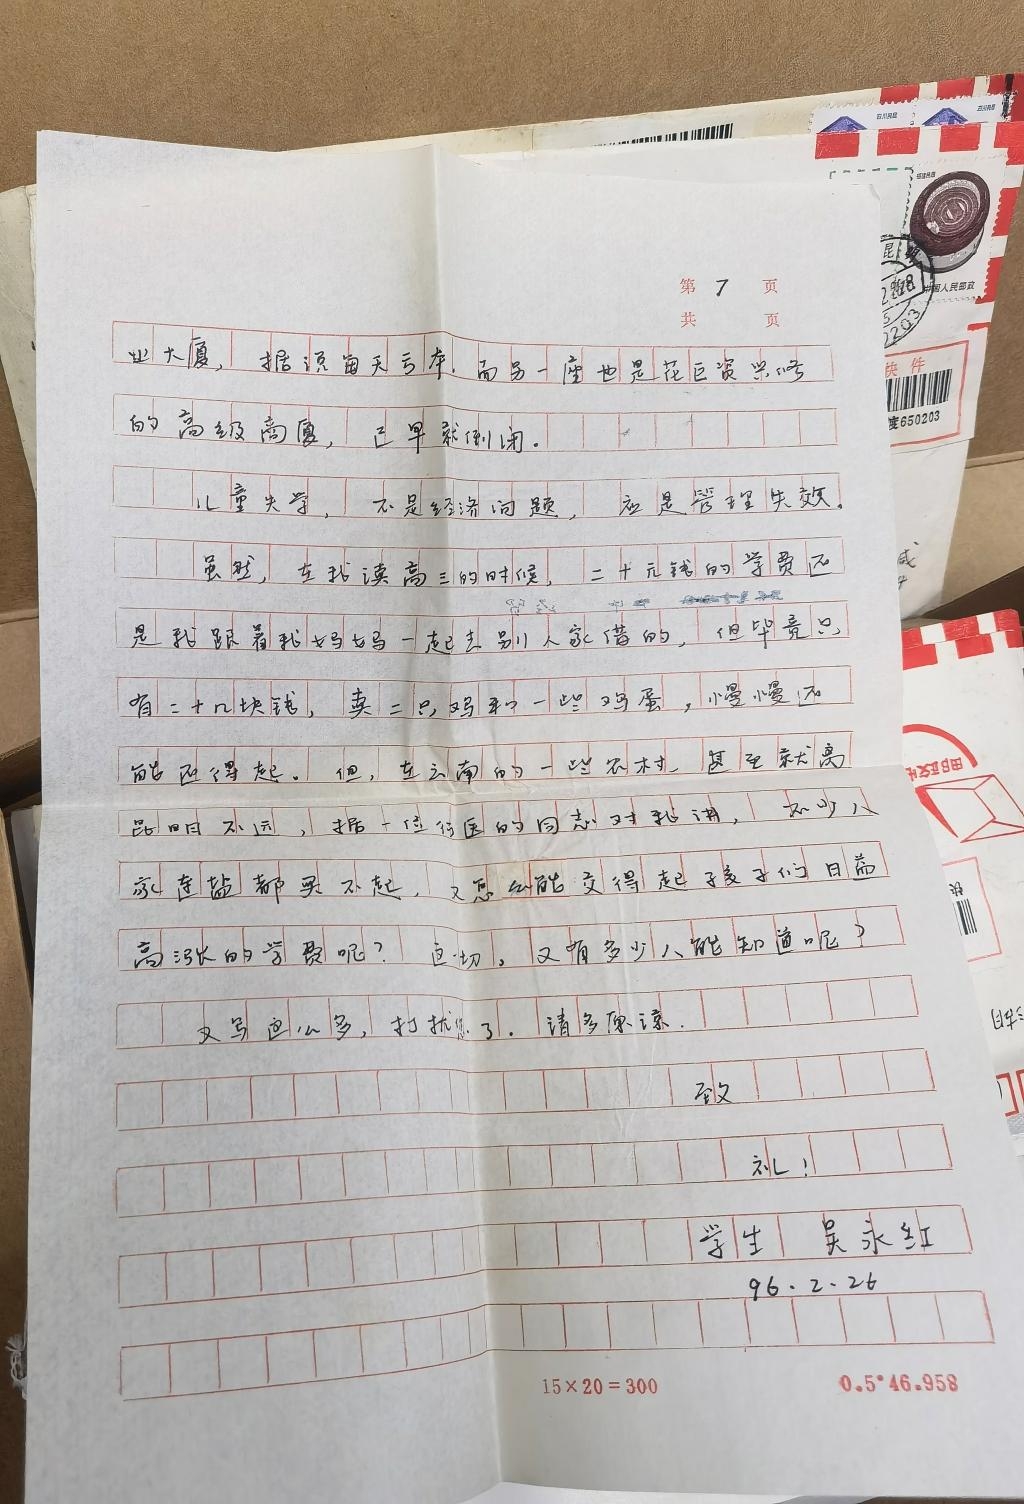 第 7 页
共 页
业大厦，据说每天亏本，而另一座也是花巨资兴修
的高级商厦，已早就倒闭。
儿童失学，不是经济问题，应是管理失效。
虽然，在我读高三的时候，二十元钱的学费还
是我跟着我妈妈一起去别人家借的，但毕竟只
有二十几块钱，卖二只鸡和一些鸡蛋，慢慢还
能还得起。但，在云南的一些农村，甚至就离
昆明不远，据一位行医的同志对我讲，不少人
家连盐都买不起，又怎么能交得起孩子们日益
高涨的学费呢？这一切，又有多少人能知道呢？
又写这么多，打扰您了。请多原谅。
致
礼！
学生 吴永红
96.2.26
15×20=300
0.5°46.958
中国人民邮政
快件
650203